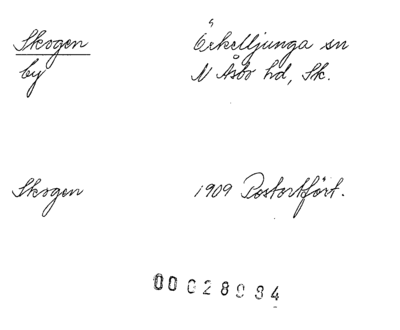 Skogen Örkelljunga sn
by N Åsbo hd, Sk.
Skogen 1909 Postortfört.